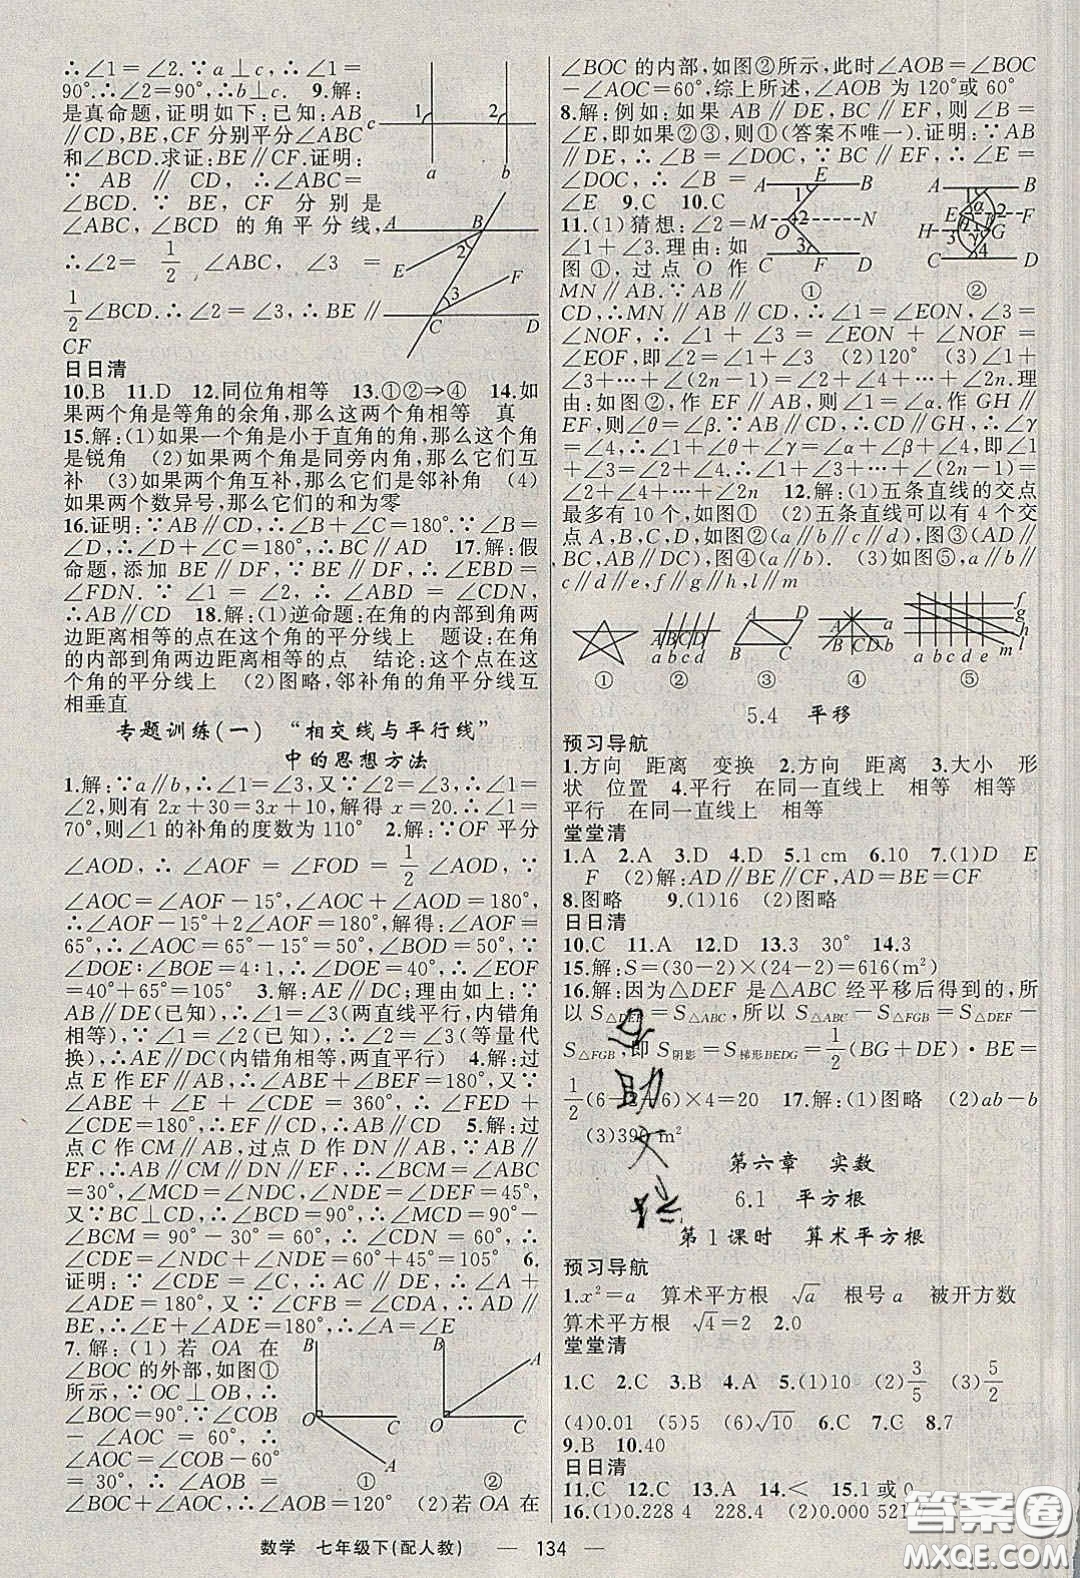 ∴∠1=∠2.∵a⊥c,∴∠1=
90°.∴∠2=90°,∴b⊥c.　9.解:
是真命题,证明如下:已知:AB
∥CD,BE,CF 分别平分∠ABC
和∠BCD.求证:BE∥CF.证明:
∵ AB ∥ CD, ∴∠ABC =
∠BCD.∵ BE, CF 分别是
∠ABC,∠BCD 的角平分线,
∴∠2 = 1/2 ∠ABC, ∠3 =
1/2 ∠BCD.∴∠2=∠3,∴BE∥
CF
c 1 2 a b
A B 2 E F 3 C D
日日清
10.B　11.D　12.同位角相等　13.①②⇒④　14.如
果两个角是等角的余角,那么这两个角相等　真
15.解:(1)如果一个角是小于直角的角,那么这个角
是锐角　(2)如果两个角是同旁内角,那么它们互
补　(3)如果两个角互补,那么它们是邻补角　(4)
如果两个数异号,那么它们的和为零
16.证明:∵AB∥CD,∴∠B+∠C=180°.∵∠B=
∠D,∴∠D+∠C=180°,∴BC∥AD　17.解:假
命题,添加 BE∥DF,∵BE∥DF,∴∠EBD=
∠FDN.∵∠1=∠2,∴∠ABD=∠CDN,
∴AB∥CD　18.解:(1)逆命题:在角的内部到角两
边距离相等的点在这个角的平分线上　题设:在角
的内部到角两边距离相等的点　结论:这个点在这
个角的平分线上　(2)图略,邻补角的角平分线互
相垂直
专题训练(一)　“相交线与平行线”
中的思想方法
1.解:∵a∥b,∴∠1=∠3,又∵∠2=∠3,∴∠1=
∠2,则有 2x+30=3x+10.解得 x=20.∴∠1=
70°,则∠1 的补角的度数为 110°　2.解:∵OF 平分
∠AOD, ∴∠AOF = ∠FOD = 1/2 ∠AOD, ∵
∠AOC=∠AOF-15°,∠AOC+∠AOD=180°,
∴∠AOF-15°+2∠AOF=180°,解得:∠AOF=
65°,∴∠AOC=65°-15°=50°,∠BOD=50°,∵
∠DOE:∠BOE=4:1,∴∠DOE=40°,∴∠EOF
=40°+65°=105°　3.解:AE∥DC;理由如上:∵
AB∥DE(已知),∴∠1=∠3(两直线平行,内错角
相等),∵∠1=∠2(已知),∴∠2=∠3(等量代
换),∴AE∥DC(内错角相等,两直平行)　4.解:过
点 E 作 EF∥AB,∴∠ABE+∠BEF=180°,又∵
∠ABE + ∠E + ∠CDE = 360°, ∴∠FED +
∠CDE=180°,∴EF∥CD,∴AB∥CD　5.解:过
点 C 作 CM∥AB,过点 D 作 DN∥AB,∵AB∥
EF,∴AB∥CM∥DN∥EF,∴∠BCM=∠ABC
=30°,∠MCD=∠NDC,∠NDE=∠DEF=45°,
又∵BC⊥CD,∴∠BCM+∠MCD=90°,∴∠MCD=
∠BCM = 90° - 30° = 60°, ∴∠CDN = 60°, ∴
∠CDE=∠NDC+∠NDE=60°+45°=105°　6.
证明:∵∠CDE=∠C,∴AC∥DE,∴∠A+
∠ADE=180°,又∵∠CFB=∠CDA,∴AD∥
BE,∴∠E+∠ADE=180°,∴∠A=∠E
7.解:(1)若 OA 在
∠BOC 的外部,如图①
所示,∵OC⊥OB,∴
∠BOC=90°.∵∠COB
-∠AOC = 60°, ∴
∠AOC=∠COB-60°
=30°, ∴∠AOB =
∠BOC+∠AOC,∴∠AOB=120°　(2)若 OA 在
B O C A ①
B A O C ②
∠BOC 的内部,如图②所示,此时∠AOB=∠BOC-
∠AOC=60°,综上所述,∠AOB 为 120°或 60°
8.解:例如:如果 AB∥DE,BC∥EF,则∠B=
∠E,即如果②③,则①(答案不唯一).证明:∵AB
∥DE,∴∠B=∠DOC,∵BC∥EF,∴∠E=
∠DOC,∴∠B=
∠E　9.C　10.C
11.(1)猜想:∠2=
∠1+∠3.理由:如
图①,过点 O 作
MN∥AB.∵AB∥
A E B 1 M 2 N O 3 C F D ①
A B E α 2 F H 3 γ G 4 C D ②
CD,∴MN∥AB∥CD,∴∠1=∠EON,∠3=
∠NOF, ∴∠1 + ∠3 = ∠EON + ∠NOF =
∠EOF,即∠2=∠1+∠3　(2)120°　(3)∠1+
∠3+…+∠(2n-1)=∠2+∠4+…+∠2n.理
由:如图②,作 EF∥AB,则∠1=∠α.作 GH∥
EF,则∠θ=∠β.又∵AB∥CD,∴CD∥GH,∴∠γ
=∠4,∴∠1+∠θ+∠γ=∠α+∠β+∠4,即∠1
+∠3=∠2+∠4,∴∠1+∠3+…+∠(2n-1)=
∠2+∠4+…+∠2n　12.解:(1)五条直线的交点
最多有 10 个,如图①　(2)五条直线可以有 4 个交
点 A,B,C,D,如图②(a∥b∥c∥d),图③(AD∥
BC,AB∥DC),图④(a∥b)　(3)如图⑤,a∥b∥
c∥d∥e∥f,f∥g∥h,l∥m
①
A B C D a b c d ②
A D B C ③
A a B C D b ④
f g h a b c d e l m ⑤
5.4　平移
预习导航
1.方向　距离　变换　2.方向　距离　3.大小　形
状　位置　4.平行　在同一直线上　相等　相等
平行　在同一直线上　相等
堂堂清
1.A　2.A　3.D　4.D　5.1 cm　6.10　7.(1)D　E
F　(2)解:AD∥BE∥CF,AD=BE=CF
8.图略　9.(1)16　(2)图略
日日清
10.C　11.A　12.D　13.3　30°　14.3
15.解:S=(30-2)×(24-2)=616(m²)
16.解:因为△DEF 是△ABC 经平移后得到的,所
以 S△DEF=S△ABC,所以 S△ABC-S△FGB=S△DEF-
S△FGB,即 S阴影=S梯形BEDG=1/2(BG+DE)·BE=
1/2(6-2+6)×4=20　17.解:(1)图略　(2)ab-b
(3)390 m²
第六章　实数
6.1　平方根
第1课时　算术平方根
预习导航
1.x²=a　算术平方根　√a　根号 a　被开方数
算术平方根　√4=2　2.0
堂堂清
1.C　2.C　3.B　4.A　5.(1)10　(2)3/5　(3)5/2
(4)0.01　(5)5　(6)√10　6.C　7.C　8.7
9.B　10.40
日日清
11.C　12.C　13.A　14.<　15.1 或 0
16.(1)0.228 4　228.4　(2)0.000 521
数学　七年级下(配人教)　—　134　—
答案圈
MXQE.COM